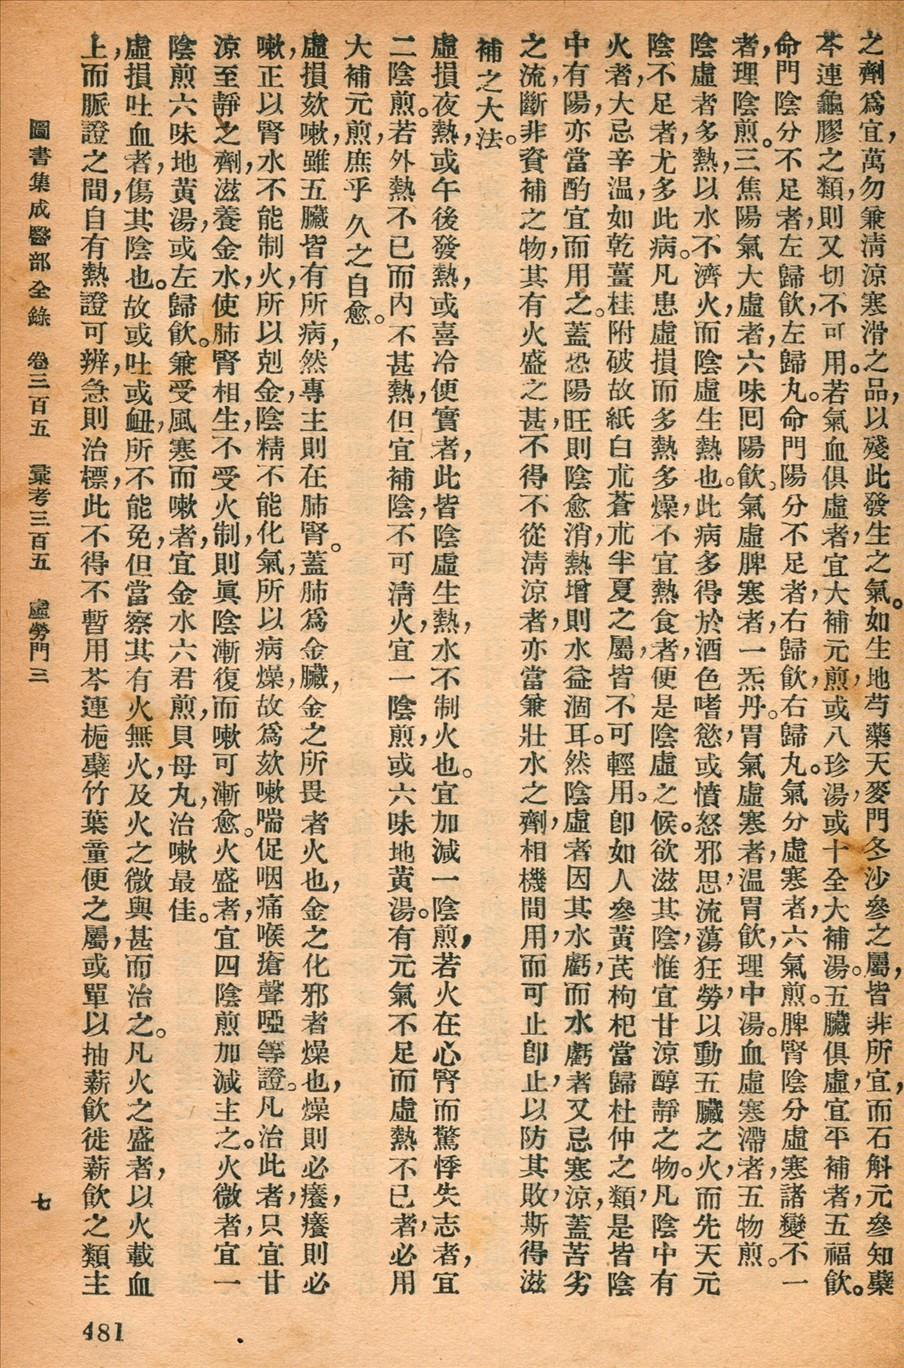 之劑爲宜，萬勿兼淸涼寒滑之品，以殘此發生之氣。如生地芍藥天麥門冬沙參之屬，皆非所宜，而石斛元參知蘗
芩連龜膠之類，則又切不可用。若氣血俱虛者，宜大補元煎，或八珍湯，或十全大補湯。五臟俱虛，宜平補者，五福飮。
命門陰分不足者，左歸飮，左歸丸。命門陽分不足者，右歸飮，右歸丸。氣分虛寒者，六氣煎。脾腎陰分虛寒諸變不一
者，理陰煎。三焦陽氣大虛者，六味囘陽飮。氣虛脾寒者，一炁丹。胃氣虛寒者，溫胃飮，理中湯。血虛寒滯者，五物煎。
陰虛者多熱，以水不濟火而陰虛生熱也。此病多得於酒色嗜慾，或憤怒邪思，流蕩狂勞，以動五臟之火，而先天元
陰不足者，尤多此病。凡患虛損而多熱多燥，不宜熱食者，便是陰虛之候。欲滋其陰，惟宜甘涼醇靜之物。凡陰中有
火者，大忌辛溫，如乾薑桂附破故紙白朮蒼朮半夏之屬，皆不可輕用。卽如人參黃芪枸杞當歸杜仲之類，是皆陰
中有陽，亦當酌宜而用之。蓋恐陽旺則陰愈消，熱增則水益涸耳。然陰虛者因其水虧，而水虧者又忌寒涼，蓋苦劣
之流，斷非資補之物，其有火盛之甚，不得不從淸涼者，亦當兼壯水之劑，相機間用，而可止卽止，以防其敗，斯得滋
補之大法。
虛損夜熱，或午後發熱，或喜冷便實者，此皆陰虛生熱，水不制火也。宜加減一陰煎，若火在心腎而驚悸失志者，宜
二陰煎。若外熱不已而內不甚熱，但宜補陰，不可淸火，宜一陰煎，或六味地黃湯。有元氣不足而虛熱不已者，必用
大補元煎，庶乎久之自愈。
虛損欬嗽，雖五臟皆有所病，然專主則在肺腎。蓋肺爲金臟，金之所畏者火也，金之化邪者燥也，燥則必癢，癢則必
嗽，正以腎水不能制火，所以剋金，陰精不能化氣，所以病燥，故爲欬嗽喘促咽痛喉瘡聲啞等證。凡治此者，只宜甘
涼至靜之劑，滋養金水，使肺腎相生，不受火制，則眞陰漸復而嗽可漸愈。火盛者，宜四陰煎加減主之。火微者，宜一
陰煎六味地黃湯，或左歸飮。兼受風寒而嗽者，宜金水六君煎，貝母丸，治嗽最佳。
虛損吐血者，傷其陰也。故或吐或衄，所不能免，但當察其有火無火，及火之微與甚而治之。凡火之盛者，以火載血
上，而脈證之間，自有熱證可辨，急則治標，此不得不暫用芩連梔蘗竹葉童便之屬，或單以抽薪飮徙薪飮之類主
圖書集成醫部全錄 卷三百五 彙考三百五 虛勞門三
七
481